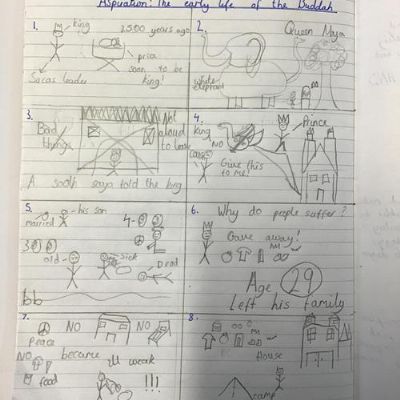 Aspiration: The early life of the Buddah
1.
King
2500 years ago
price
soon to be
king!
Sacas leader
2.
Queen Maya
white
elephant
3.
Not
aloud
to leave
Bad
things
A sooth saya told the king
4.
King
NO
Prince
Give this
to me!
5.
his son
married
4-
3
old
sick
Dead
6. Why do people suffer?
Gave away!
Age 29
left his family
7.
NO
NO
Peace
NO
became
ill weak
food
!!!
8.
House
camp